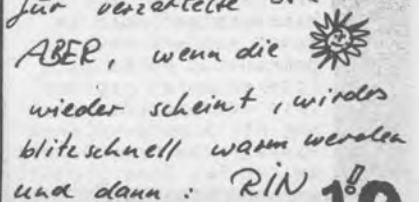 für verzärtelte
ABER, wenn die
wieder scheint, wird es
blitzschnell warm werden
und dann: RIN!